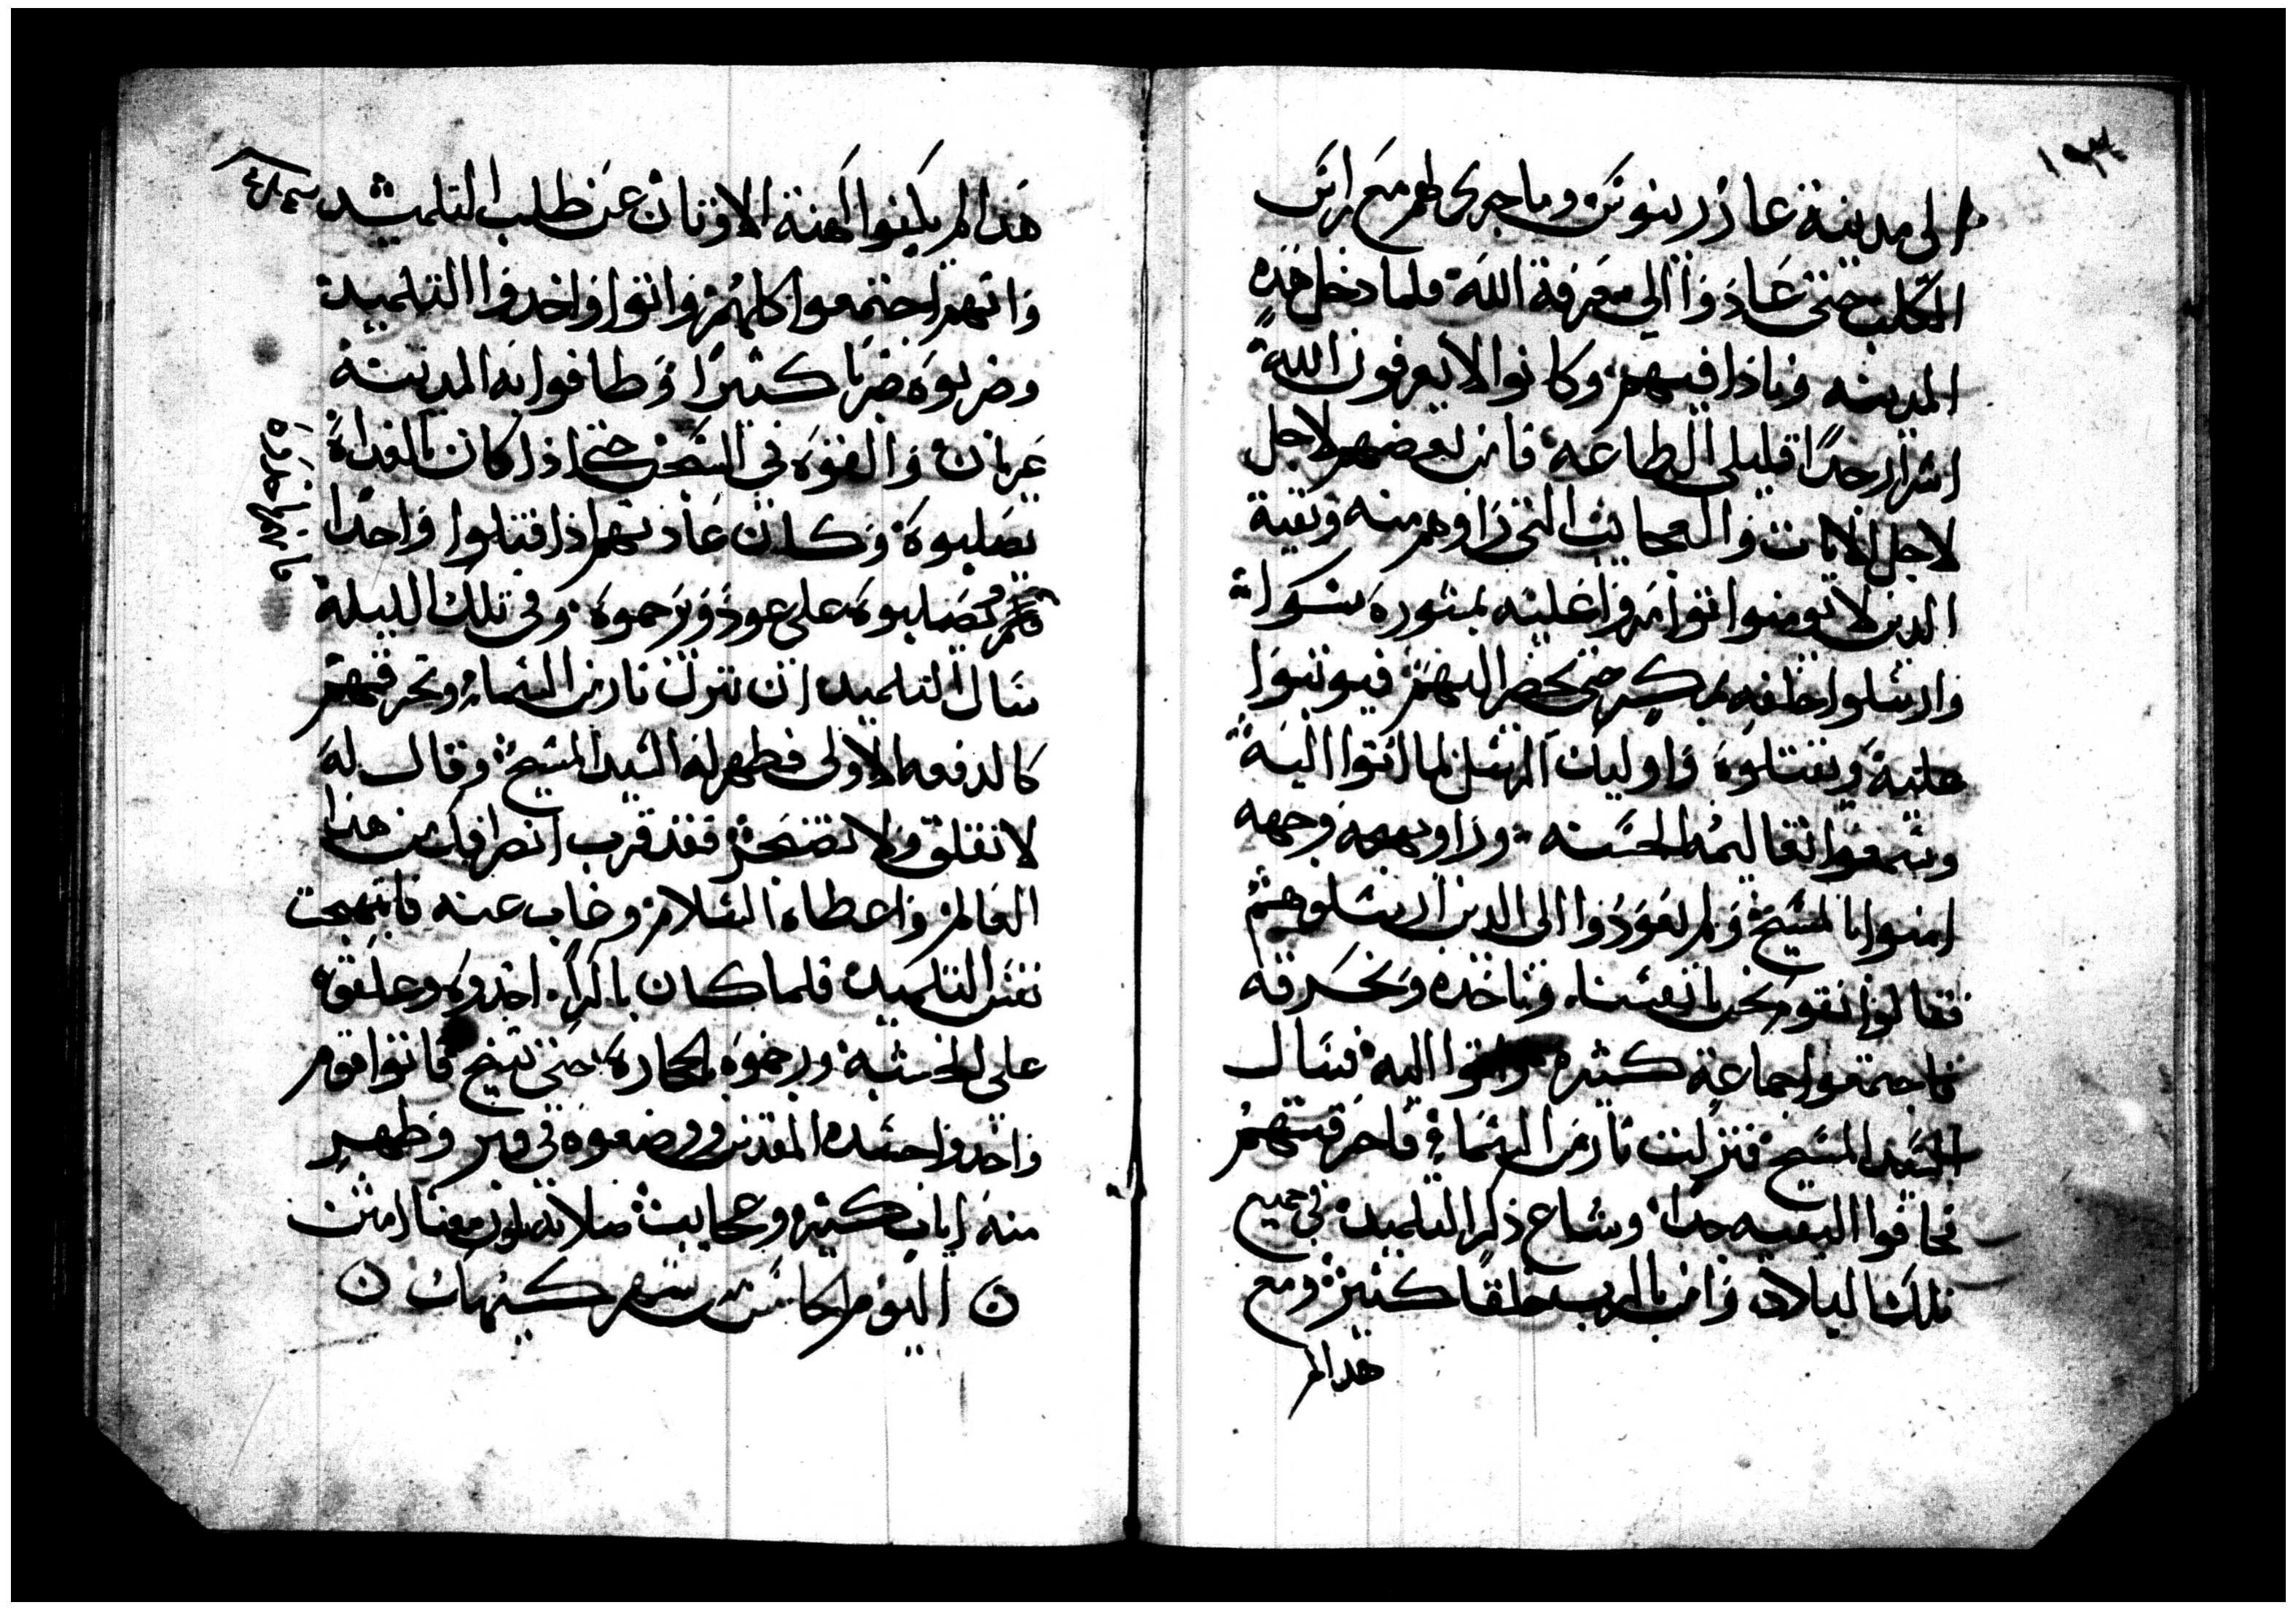 ١٩٣
الى مدينة عازرينوس وما جرى لهم مع راس
الكلب حتى عادوا الى معرفة الله فلما دخل هذه
المدينه ونادا فيهم وكانوا لا يعرفون الله
اشرار جدًا قليلى الطاعه فامن بعضهم لاجل
لاجل الايات والعجايب التى راوهم منه وبقية
الدين لا يومنوا توامروا عليه بمشورة سوا
وارسلوا خلفه بمكر حتى يحضر اليهم فيوتبوا
عليه ويقتلوه واوليك الرسل لما اتوا اليه
وسمعوا تعاليمه الحسنه وراو بهجة وجهه
امنوا بالمسيح ولم يعودوا الى الدين ارسلوهم
فقالوا نقوم نحن بانفسنا وناخده ونحرقه
فاجتمعوا جماعة كثيره واتوا اليه فسال
السيد المسيح فنزلت نار من السماء فاحرقتهم
فخافوا البقيه جدا وشاع ذكر التلميد في جميع
تلك البلاد وامن بالرب خلقا كثيرة ومع
هدا لم
هدا لم يكفوا كهنة الاوتان عن طلب التلميد
وانهم اجتمعوا كلهم واتوا واخدوا التلميد
وضربوه ضربا كثيرا وطافوا به المدينة
عريان والقوه في السجن حتى اذا كان بالغداة
يصلبوه وكان عادتهم اذا قتلوا واحدًا
يصلبوه على عود ويرجموه وفي تلك الليلة
سال التلميد ان تنزل نار من السماء وتحرقهم
كالدفعه الاولى فظهر له السيد المسيح وقال له
لا تقلق ولا تضجر فقد قرب انصرافك من هذا
العالم واعطاه السلام وغاب عنه فابتهجت
نفس التلميد فلما كان باكرا اخدوه وعلقوه
على الخشبة ورجموه بالحجارة حتى تنيح فاتوا قوم
واخدوا جسده المقدس ووضعوه في قبر وظهر
منه ايات كثيره وعجايب صلاته تكون معنا امين
اليوم الخامس شهر كيهك